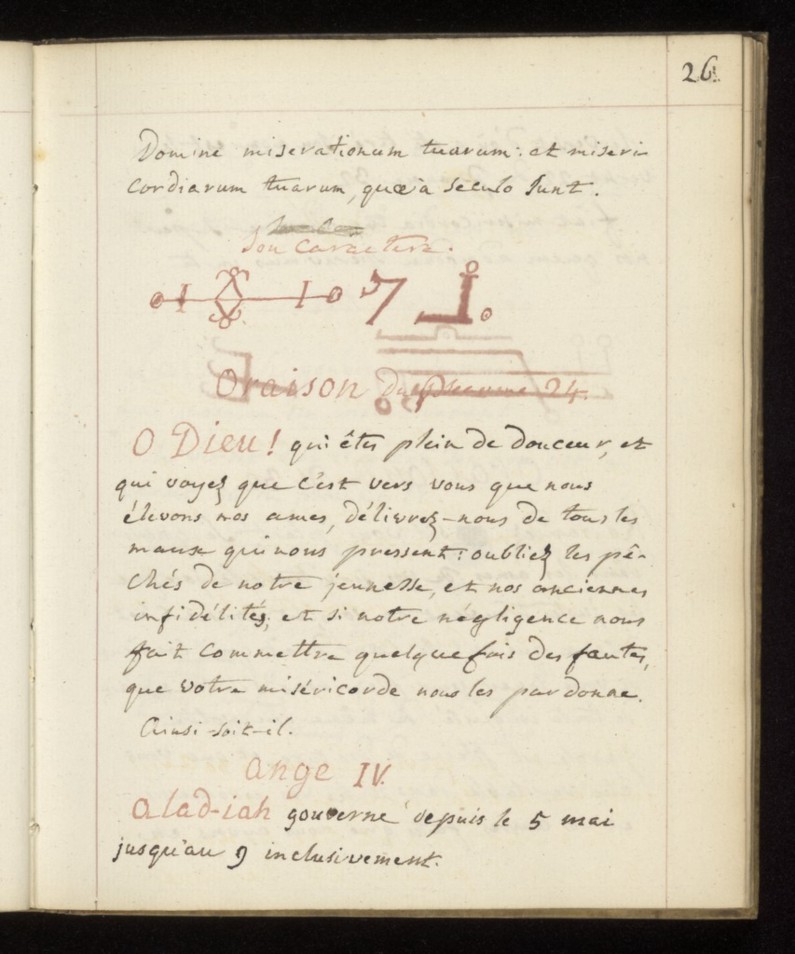 26.
Domine miserationum tuarum: et miseri-
cordiarum tuarum, quæ à seculo sunt.
Son caractere.
Oraison du Pseaume 24.
O Dieu! qui êtes plein de douceur, et
qui voyez que c'est vers vous que nous
élevons nos ames, délivrez-nous de tous les
maux qui nous pressent: oubliez les pê-
chés de notre jeunesse, et nos anciennes
infidélités; et si notre négligence nous
fait commettre quelquefois des fautes,
que votre miséricorde nous les pardonne.
Ainsi-soit-il.
Ange IV.
Alad-iah gouverne depuis le 5 mai
jusqu'au 9 inclusivement.